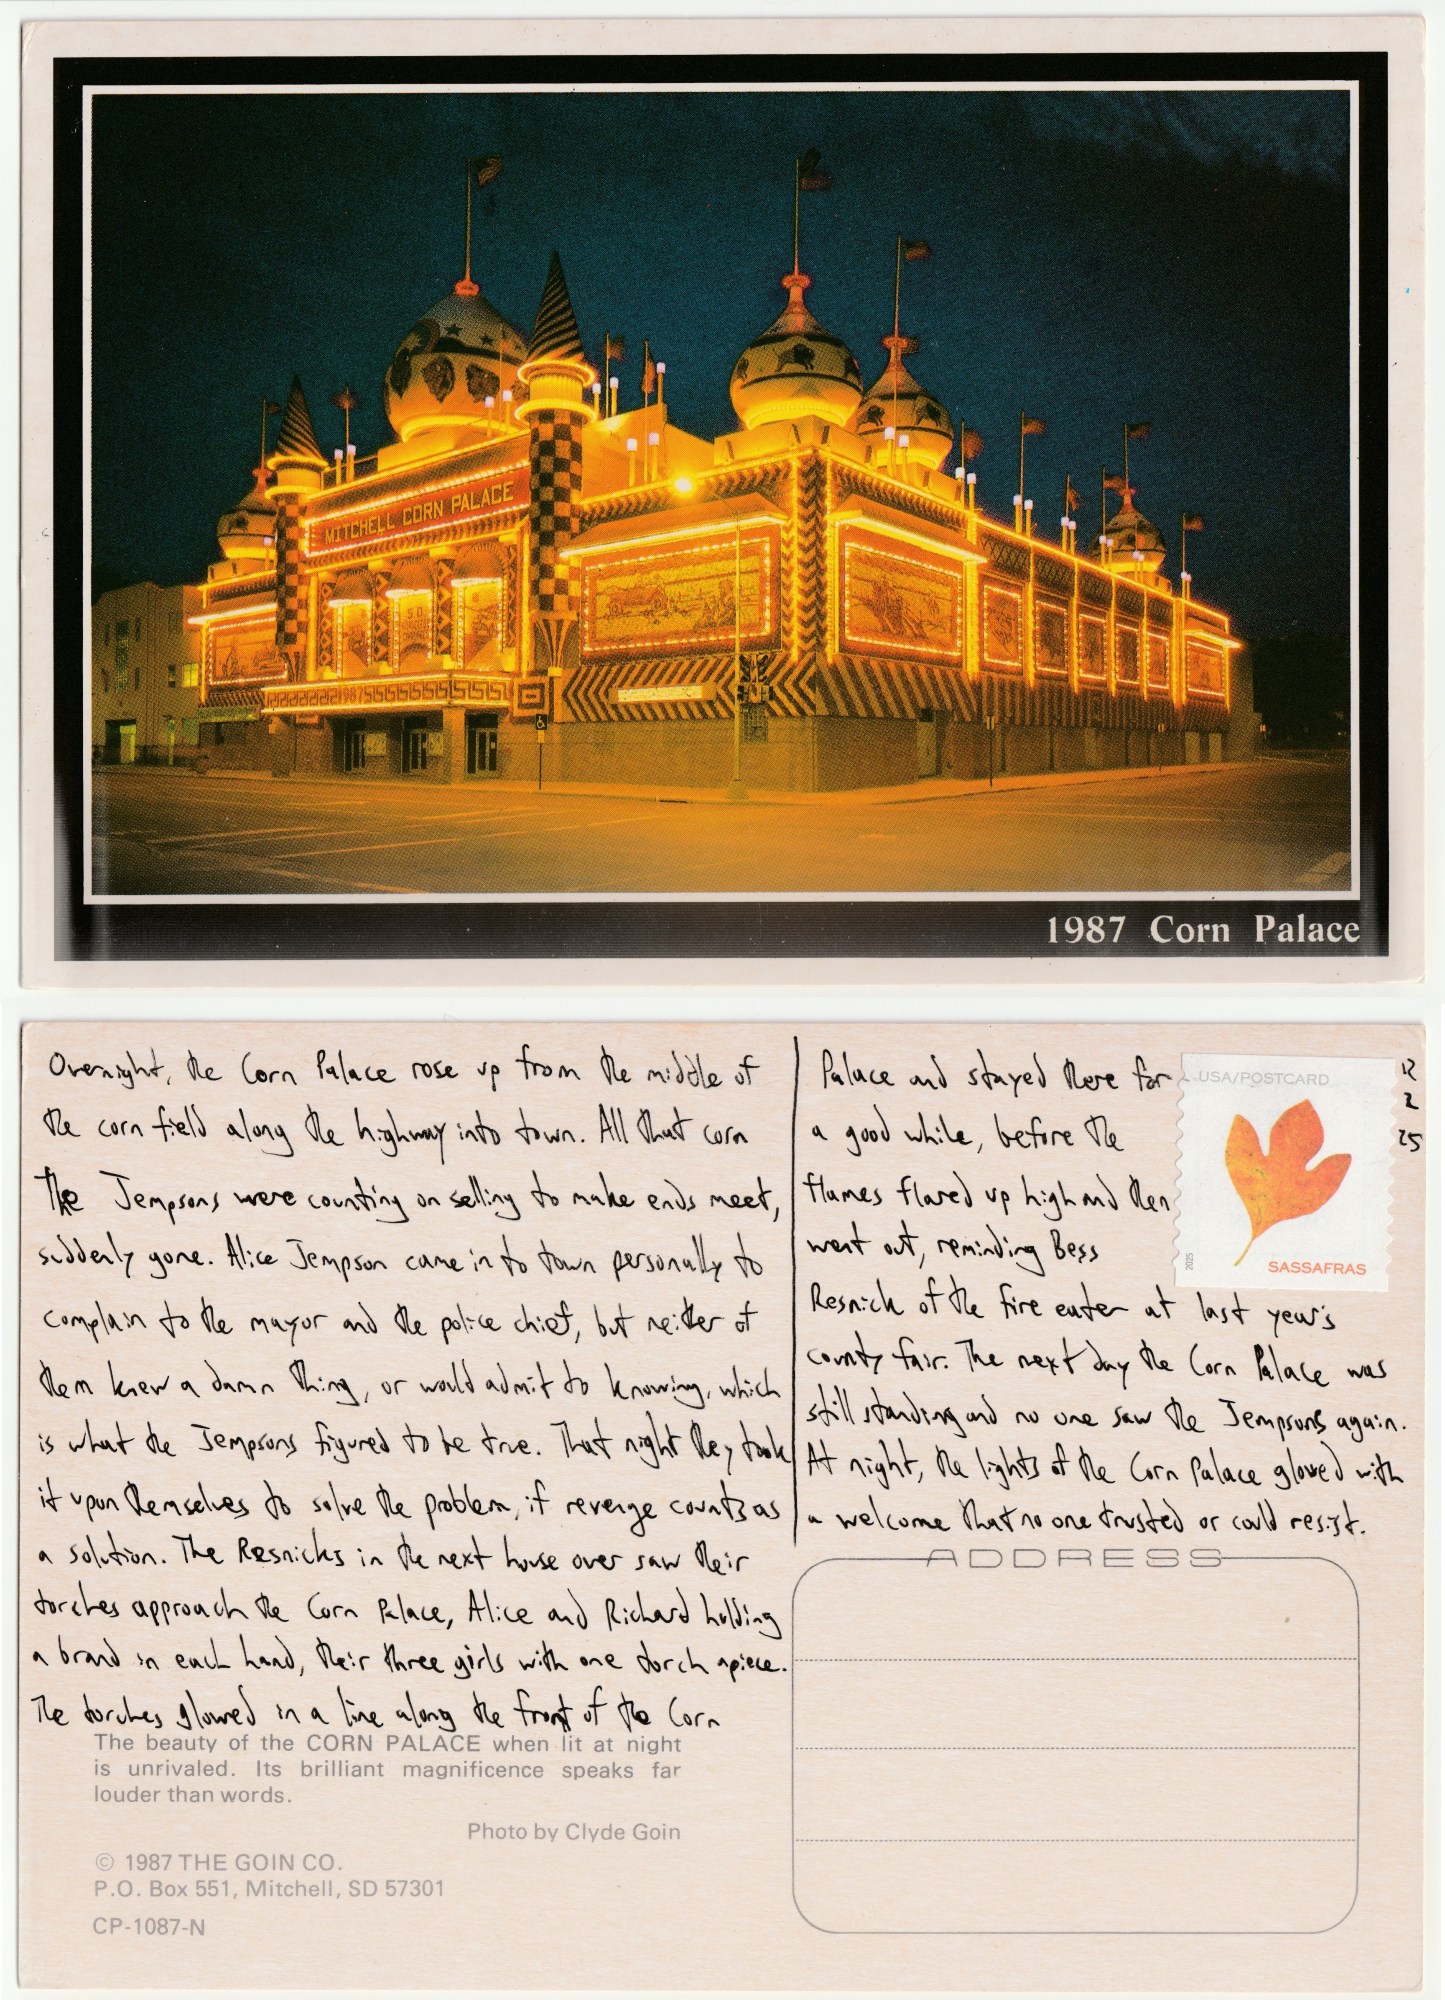 MITCHELL CORN PALACE
1987
1987 Corn Palace
Overnight, the Corn Palace rose up from the middle of
the corn field along the highway into town. All that corn
The Jempsons were counting on selling to make ends meet,
suddenly gone. Alice Jempson came in to town personally to
complain to the mayor and the police chief, but neither of
them knew a damn thing, or would admit to knowing, which
is what the Jempsons figured to be true. That night they took
it upon themselves to solve the problem, if revenge counts as
a solution. The Resnicks in the next house over saw their
torches approach the Corn Palace, Alice and Richard holding
a brand in each hand, their three girls with one torch apiece.
The torches glowed in a line along the front of the Corn
Palace and stayed there for
a good while, before the
flames flared up high and then
went out, reminding Bess
Resnick of the fire eater at last year's
county fair. The next day the Corn Palace was
still standing and no one saw the Jempsons again.
At night, the lights of the Corn Palace glowed with
a welcome that no one trusted or could resist.
USA/POSTCARD
2025
SASSAFRAS
12
2
25
ADDRESS
The beauty of the CORN PALACE when lit at night
is unrivaled. Its brilliant magnificence speaks far
louder than words.
Photo by Clyde Goin
© 1987 THE GOIN CO.
P.O. Box 551, Mitchell, SD 57301
CP-1087-N